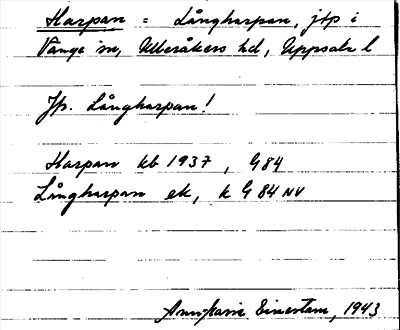 Harpan = Långharpan, jtp i
Vänge sn, Ulleråkers hd, Uppsala l
Jfr. Långharpan!
Harpan kb 1937, G84
Långharpan ek, k G 84 NV
Einerstam, 1943